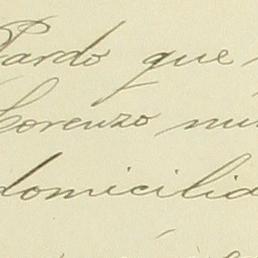 Pardo que
Lorenzo nú
domicilid